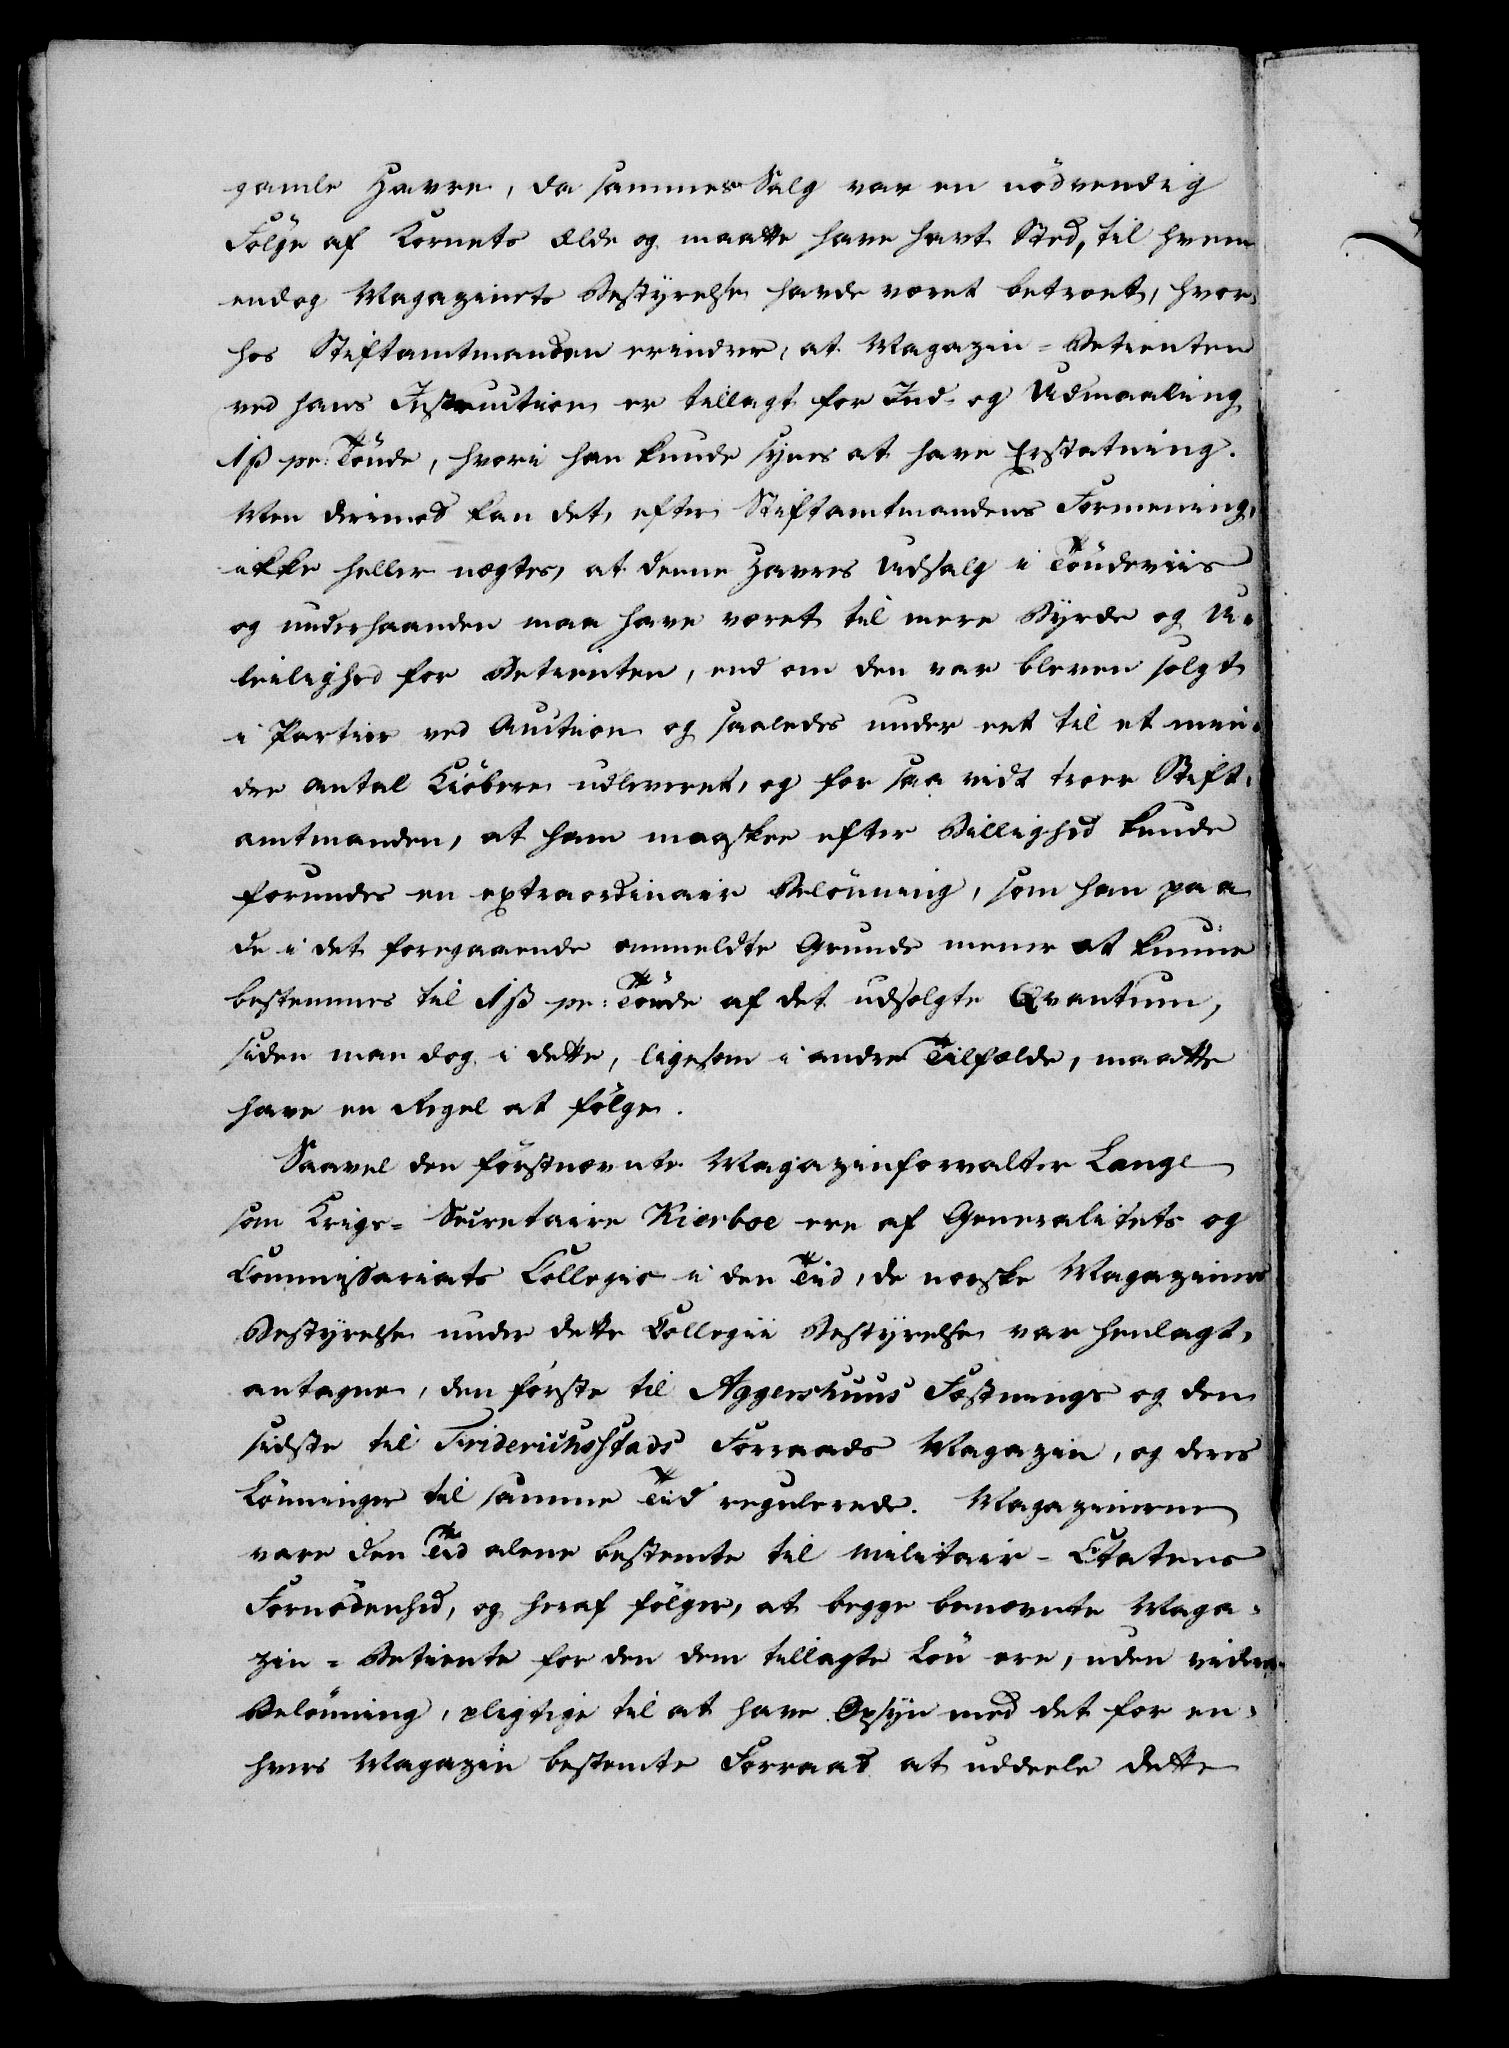 gamle Havre, da sammes Salg var en nödvendig
Fölge af Kornets Ælde og maatte have havt Sted, til hvem
endog Magazinets Bestyrelse havde været betroet, hvor-
hos Stiftamtmanden erindrer, at Magazin-Betienten
ved hans Instruction er tillagt for Ind- og Udmaaling
1 ß pr: Tönde, hvori han kunde synes at have Erstatning.
Men derimod kan det, efter Stiftamtmandens Formening,
ikke heller nægtes, at denne Havres Udsalg i Töndeviis
og underhaanden maa have været til mere Byrde og U-
leilighed for Betienten, end om den var bleven solgt
i Partier ved Auction og saaledes under eet til et min-
dre Antal Kiöbere udleveret, og for saa vidt troer Stift-
amtmanden, at ham maaskee efter Billighed kunde
forundes en extraordinair Belönning, som han paa
de i det foregaaende anmeldte Grunde mener at kunne
bestemmes til 1 ß pr: Tönde af det udsolgte Qvantum,
siden man dog i dette, ligesom i andre Tilfælde, maatte
have en Regel at fölge.
Saavel den förstnævnte Magazinforvalter Lange
som Krigs- Secretaire Kierboe ere af Generalitets og
Commissariats Collegie i den Tid, de norske Magaziners
Bestyrelse under dette Collegii Bestyrelse var henlagt,
antagne, den förste til Aggershuus Fæstnings og den
sidste til Friderichsstads Forraads Magazin, og deres
Lönninger til samme Tid regulerede. Magazinerne
vare den Tid alene bestemte til Militair-Etatens
Fornödenhed, og heraf fölger, at begge benævnte Maga-
zin-Betiente for den dem tillagte Lön ere, uden videre
Belönning, pligtige til at have Opsyn med det for en-
hvers Magazin bestemte Forraad at uddeele dette